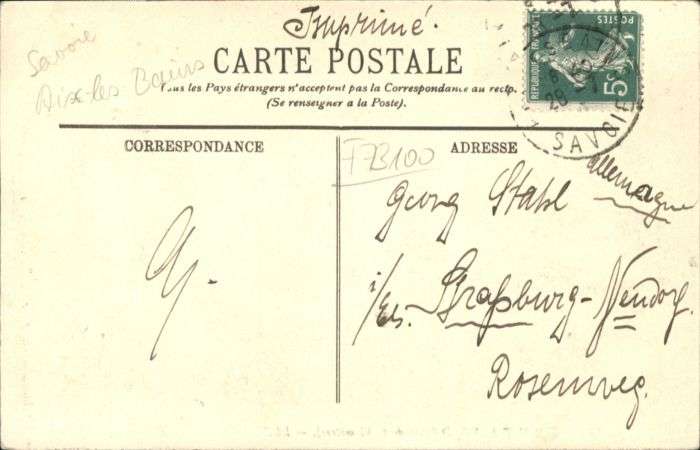 Imprimé.
Savoie
CARTE POSTALE
Aix-les Bains
Tous les Pays étrangers n'acceptent pas la Correspondance au recto.
(Se renseigner à la Poste).
POSTES
REPUBLIQUE FRANÇAISE
5c
SAVOIE
CORRESPONDANCE
F73100
ADRESSE
Allemagne
Georg Stahl
i/Els. Straßburg-Neudorf.
Rosenweg.